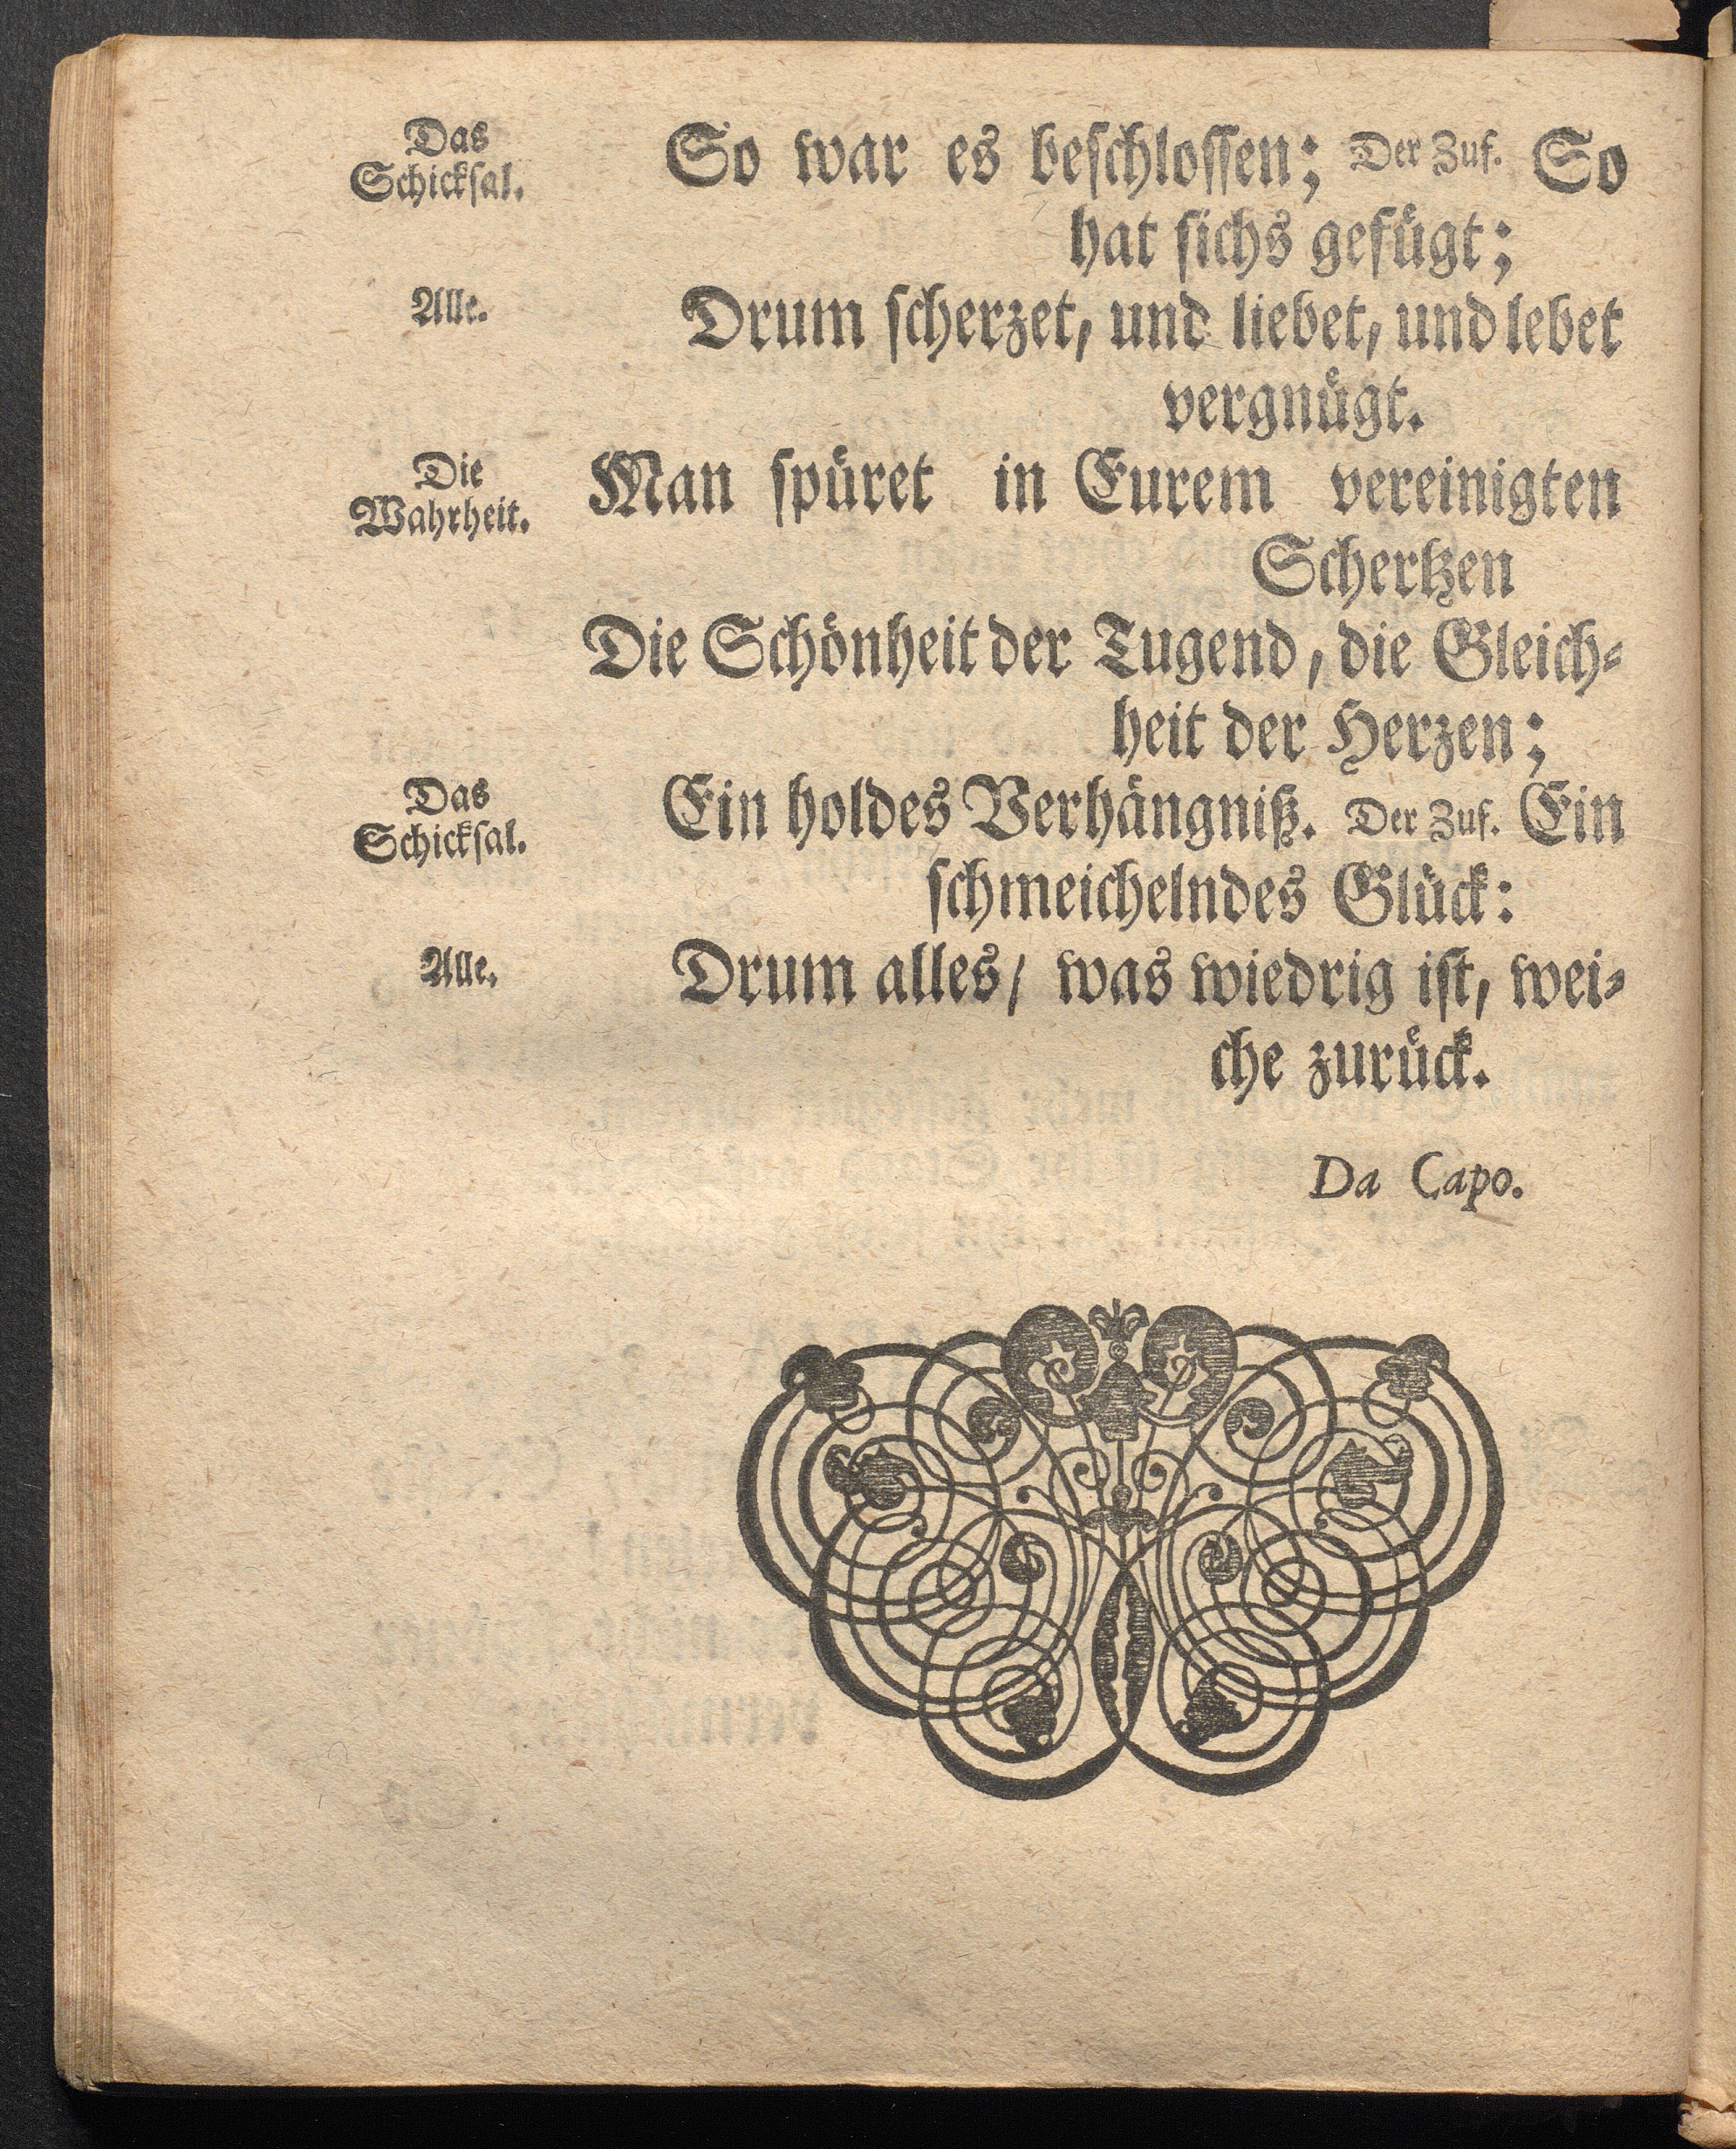 Das
Schicksal.
So war es beschlossen; Der Zuf. So
hat sichs gefügt;
Alle.
Drum scherzet, und liebet, und lebet
vergnügt.
Die
Wahrheit.
Man spüret in Eurem vereinigten
Schertzen
Die Schönheit der Tugend, die Gleich-
heit der Herzen;
Das
Schicksal.
Ein holdes Verhängniß. Der Zuf. Ein
schmeichelndes Glück:
Alle.
Drum alles/ was wiedrig ist, wei-
che zurück.
Da Capo.